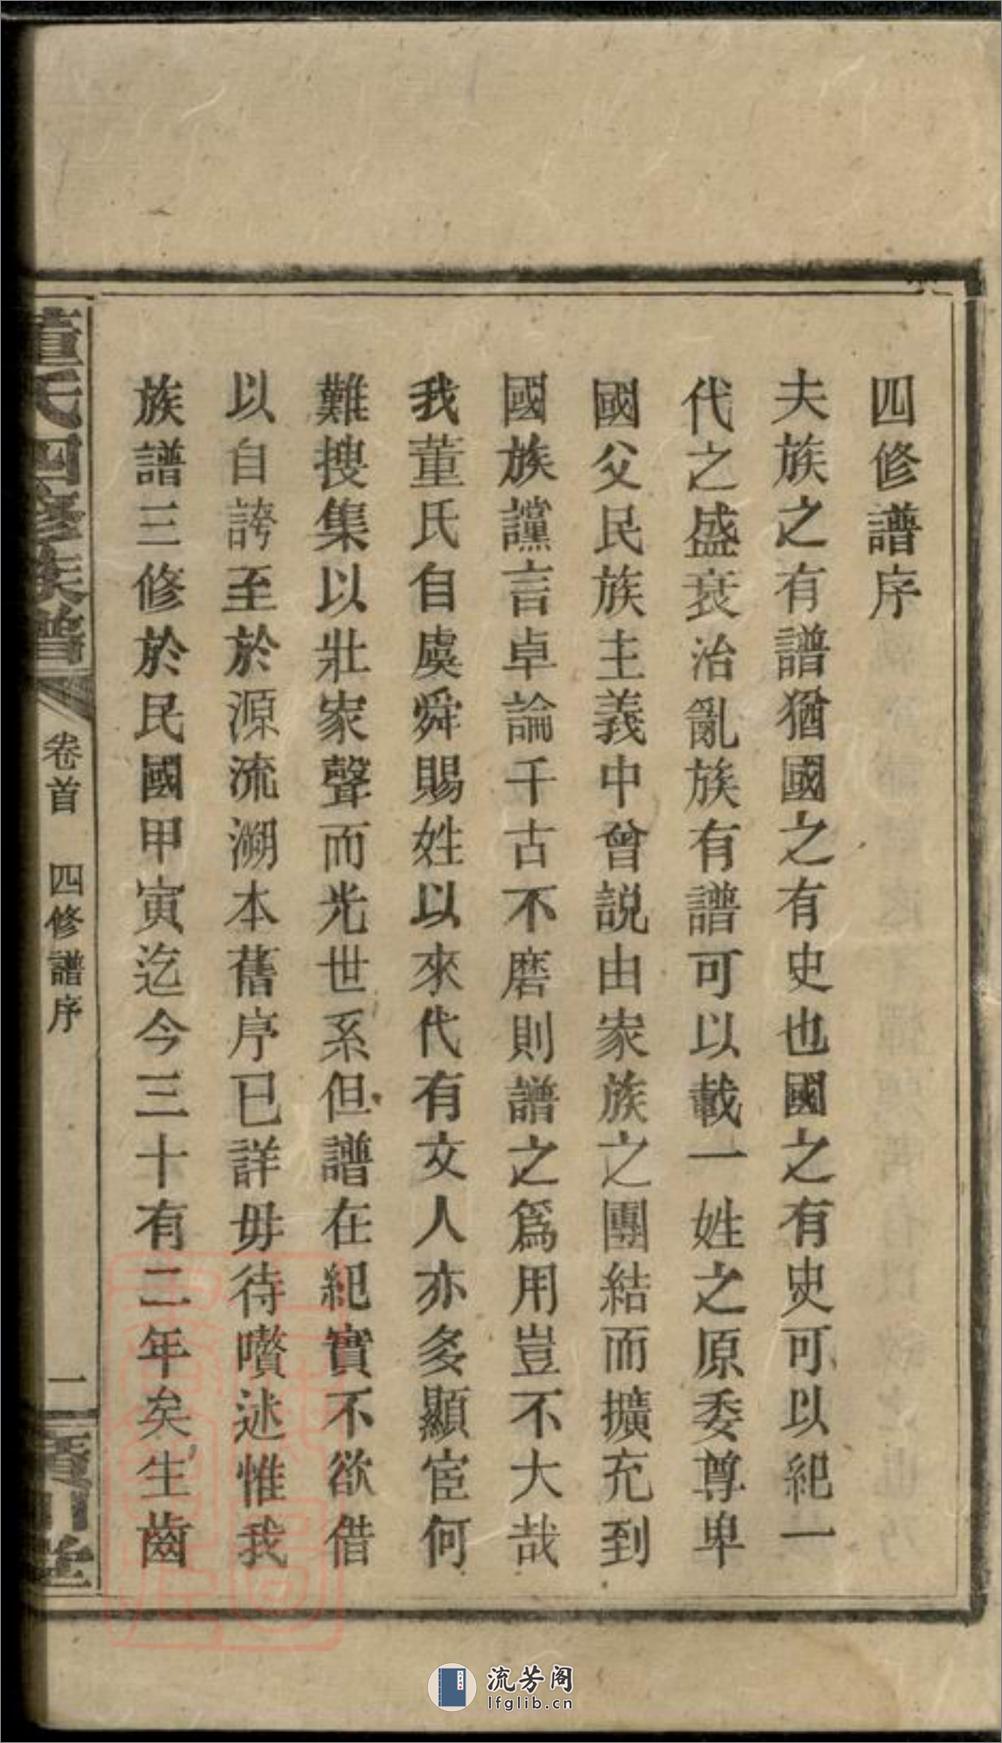 四修譜序
夫族之有譜猶國之有史也國之有史可以紀一
代之盛衰治亂族有譜可以載一姓之原委尊卑
國父民族主義中曾説由家族之團結而擴充到
國族讜言卓論千古不磨則譜之爲用豈不大哉
我董氏自虞舜賜姓以來代有文人亦多顯宦何
難搜集以壯家聲而光世系但譜在紀實不欲借
以自誇至於源流溯本舊序已詳毋待囋述惟我
族譜三修於民國甲寅迄今三十有二年矣生齒
董氏四修族譜
卷首 四修譜序
二
流芳阁
lfglib.cn